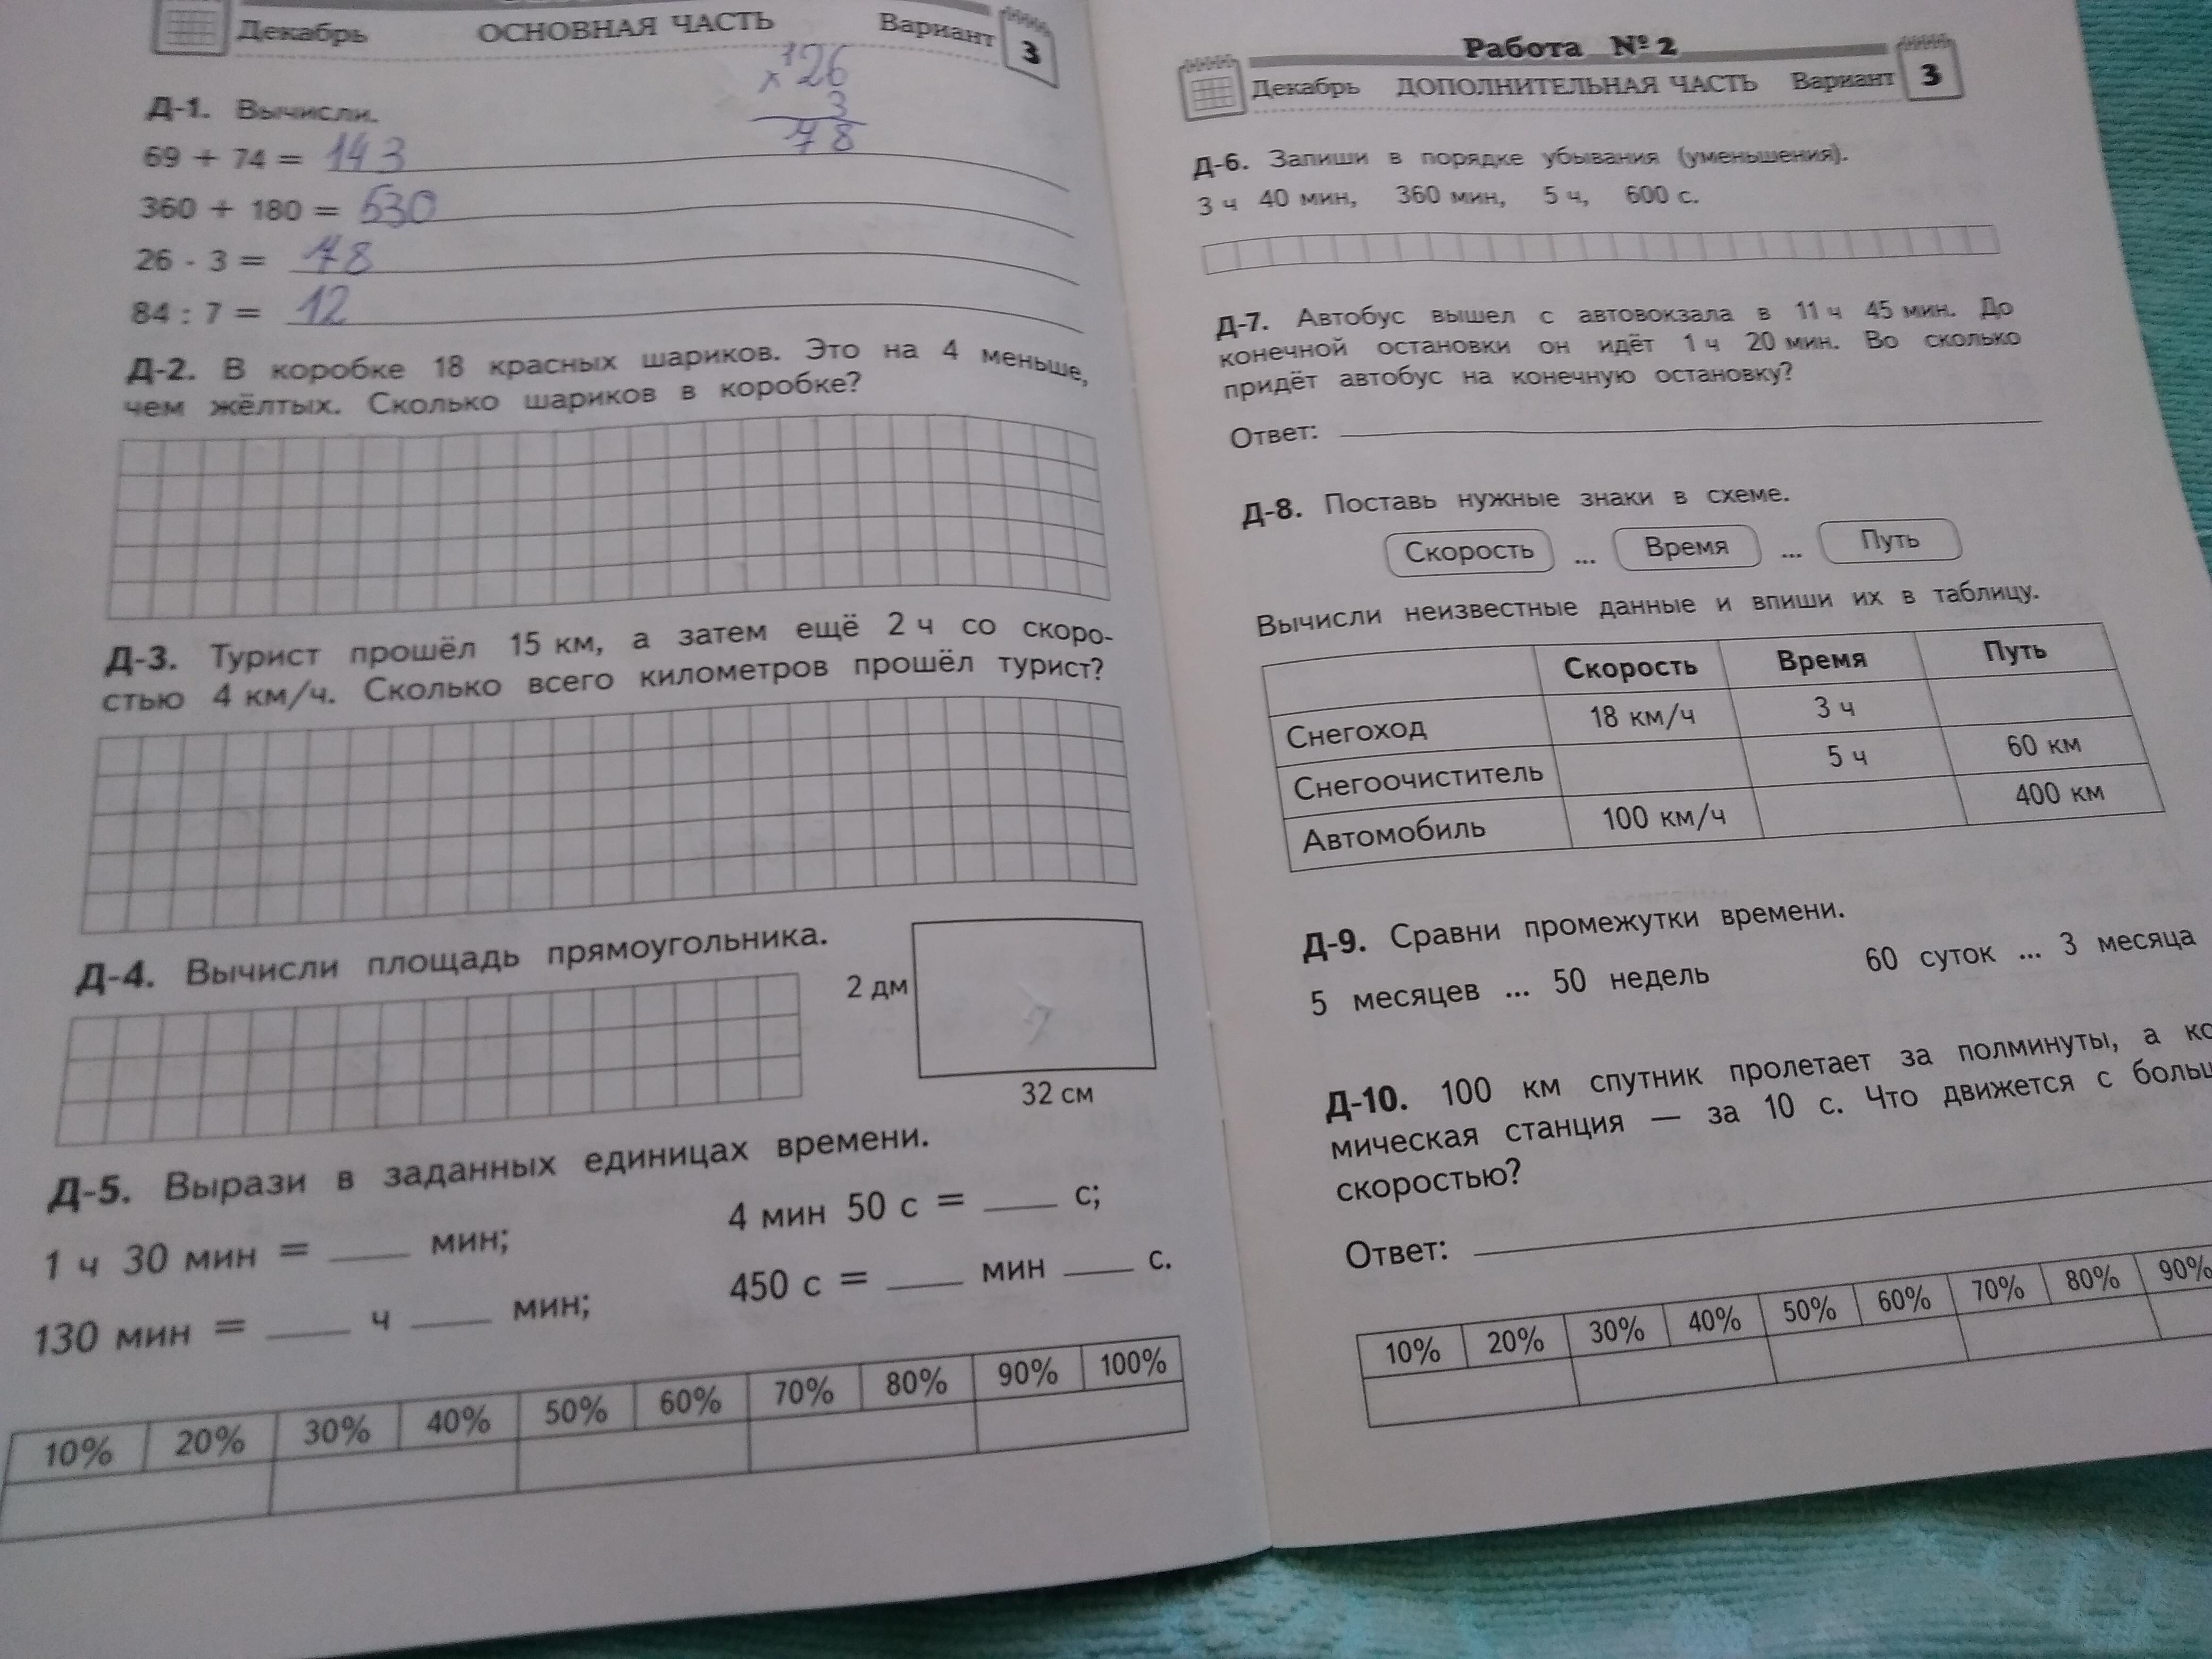 Декабрь ОСНОВНАЯ ЧАСТЬ Вариант 3
Д-1. Вычисли.
69 + 74 = 143
360 + 180 = 530
26 · 3 = 78
84 : 7 = 12
× 26
3
78
Д-2. В коробке 18 красных шариков. Это на 4 меньше,
чем жёлтых. Сколько шариков в коробке?
Д-3. Турист прошёл 15 км, а затем ещё 2 ч со скоро-
стью 4 км/ч. Сколько всего километров прошёл турист?
Д-4. Вычисли площадь прямоугольника.
2 дм
32 см
Д-5. Вырази в заданных единицах времени.
1 ч 30 мин = ____ мин;
4 мин 50 с = ____ с;
130 мин = ____ ч ____ мин;
450 с = ____ мин ____ с.
10% 20% 30% 40% 50% 60% 70% 80% 90% 100%
Работа № 2
Декабрь ДОПОЛНИТЕЛЬНАЯ ЧАСТЬ Вариант 3
Д-6. Запиши в порядке убывания (уменьшения).
3 ч 40 мин, 360 мин, 5 ч, 600 с.
Д-7. Автобус вышел с автовокзала в 11 ч 45 мин. До
конечной остановки он идёт 1 ч 20 мин. Во сколько
придёт автобус на конечную остановку?
Ответ:
Д-8. Поставь нужные знаки в схеме.
Скорость ... Время ... Путь
Вычисли неизвестные данные и впиши их в таблицу.
Скорость Время Путь
Снегоход 18 км/ч 3 ч
Снегоочиститель 5 ч 60 км
Автомобиль 100 км/ч 400 км
Д-9. Сравни промежутки времени.
5 месяцев ... 50 недель 60 суток ... 3 месяца
Д-10. 100 км спутник пролетает за полминуты, а ко
мическая станция — за 10 с. Что движется с больш
скоростью?
Ответ:
10% 20% 30% 40% 50% 60% 70% 80% 90%